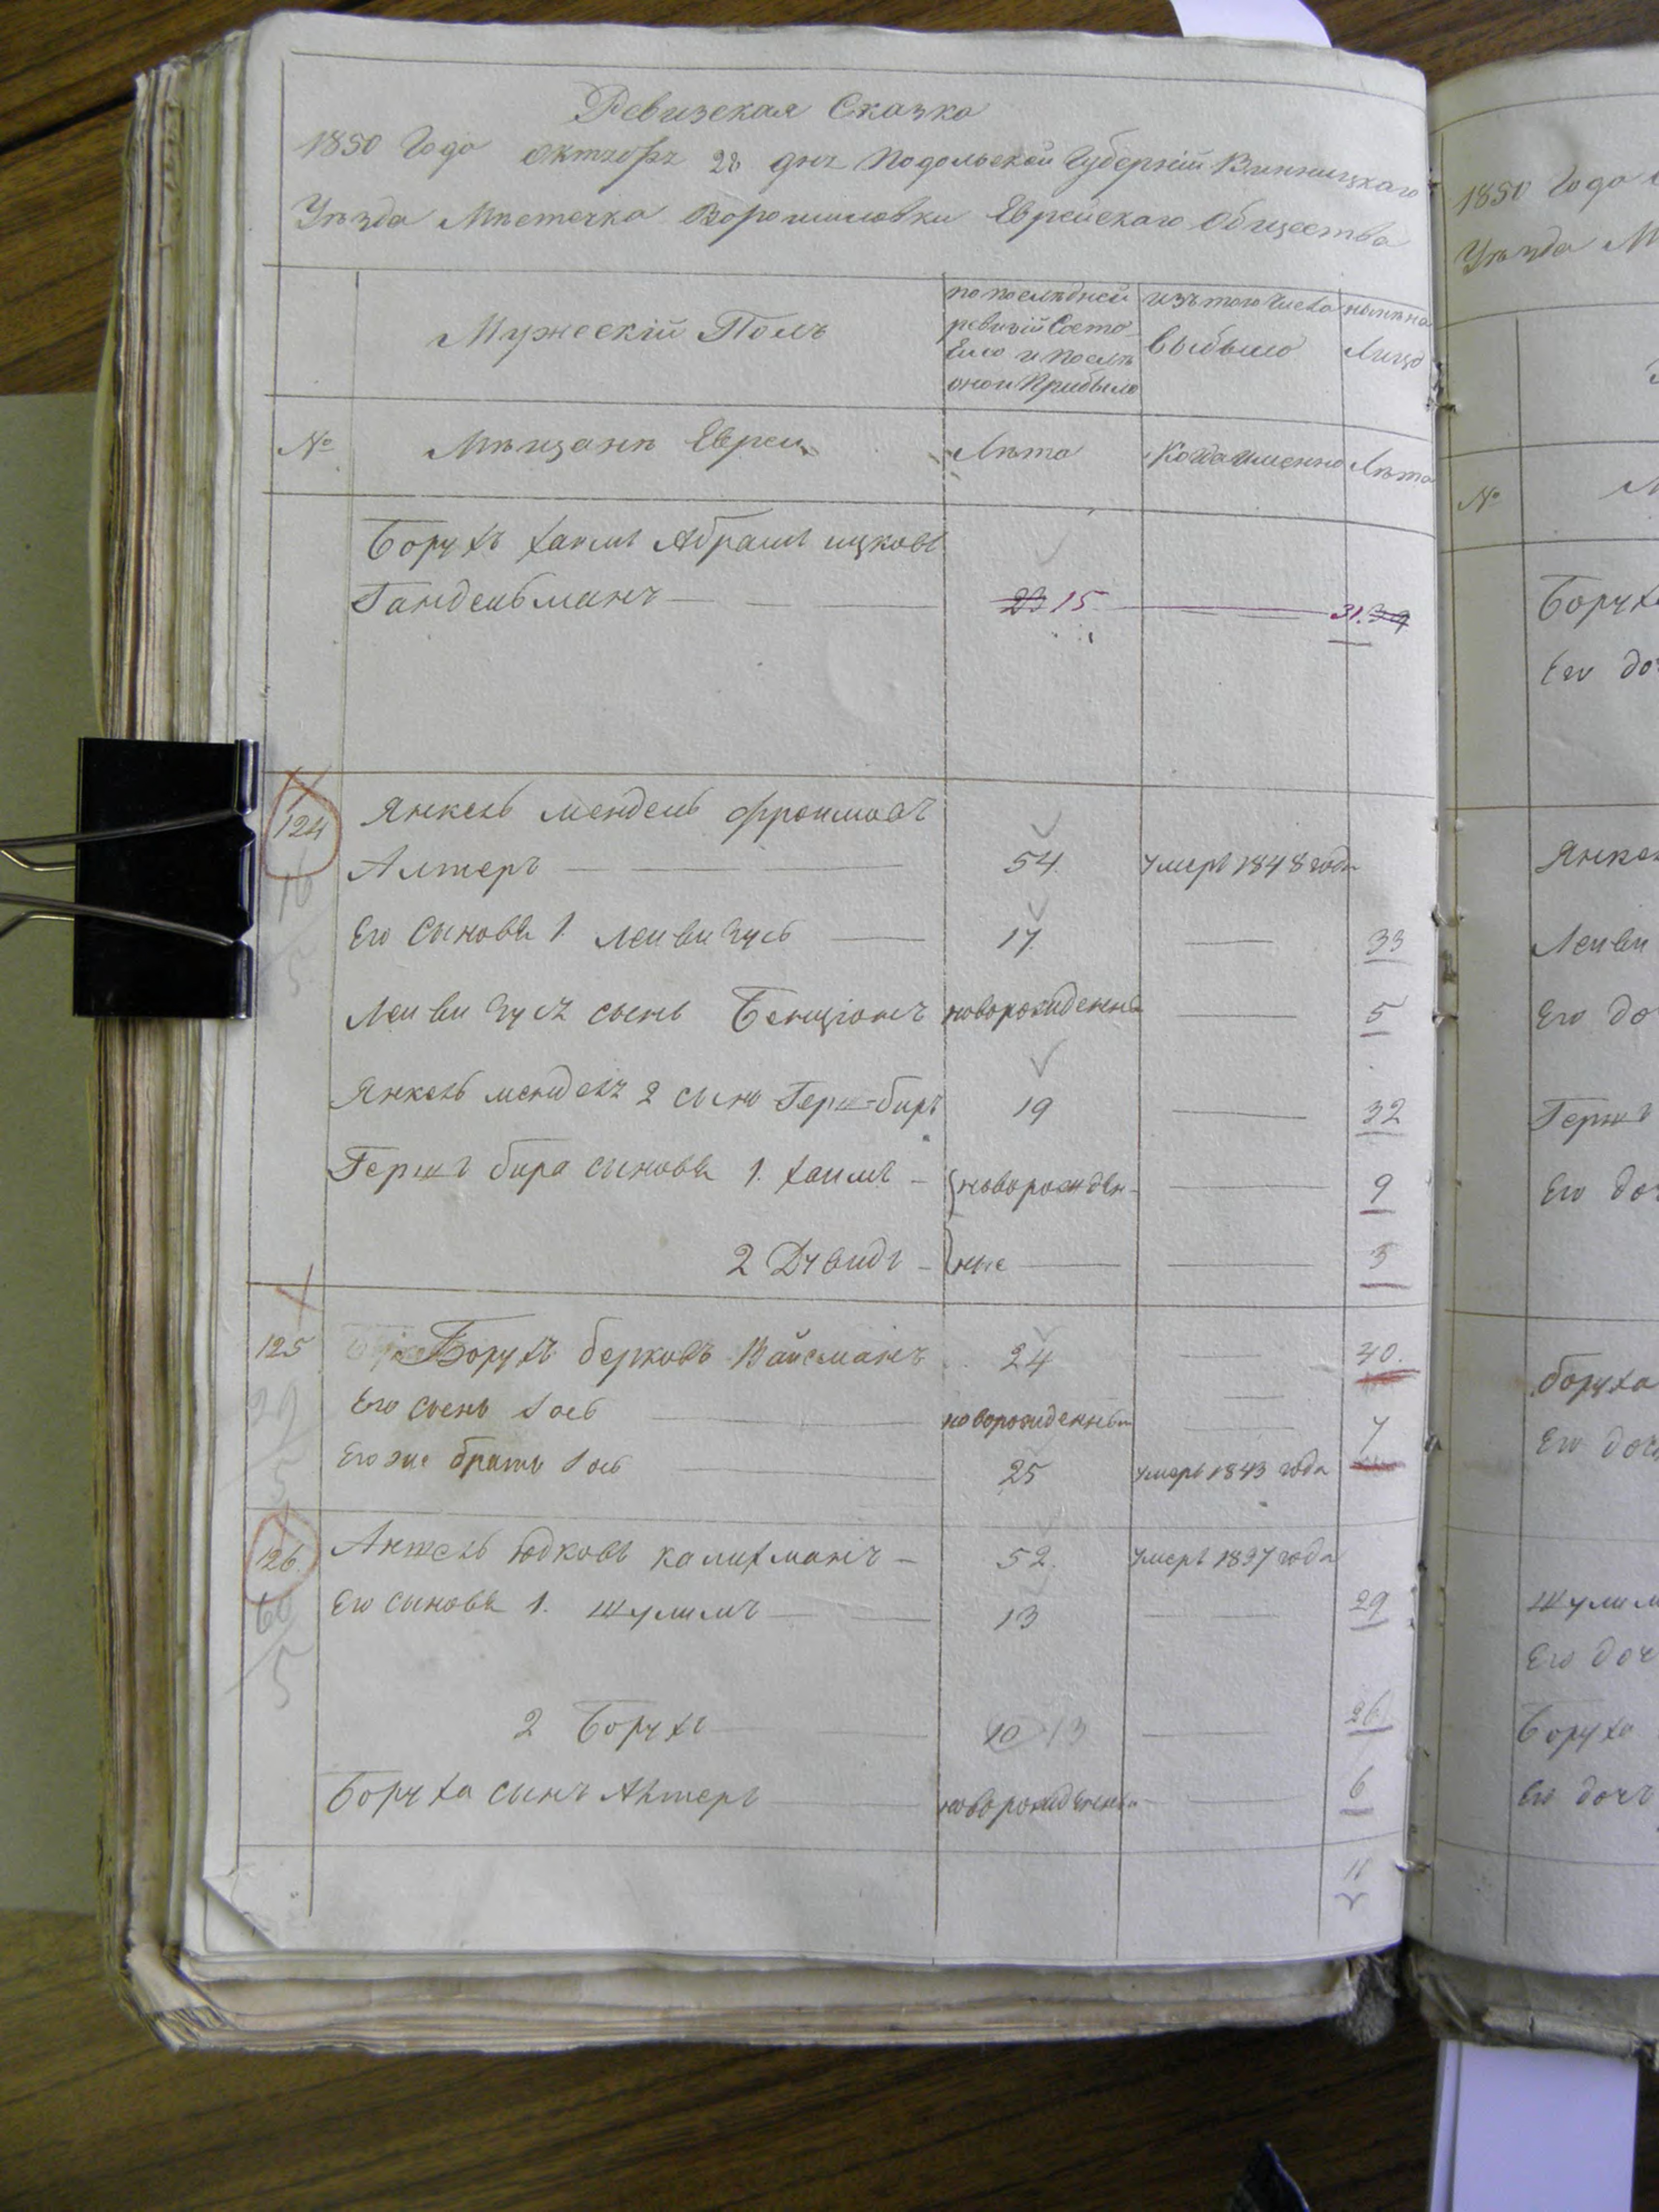 Ревизская Сказка
1850 Года октября 28 дня Подольской Губерній Винницкаго
Уѣзда Мѣстечка Вороншловки Еврейскаго Общества
Мужескій Полъ
по послѣдней ревизій Состояло и послѣ оной Прибыло
изъ того Числа выбыло
нынѣ на Лицо
№ Мѣщанѣ Евреи Лѣта Когда именно Лѣта
Борухъ Хаимъ Абрамъ ицковъ
Гандельманъ 23 15 31. 39
124 Янкель мендель Фроимовъ
Алтеръ 54. умеръ 1848 года
Его Сыновя 1. Леиви 17. 33
сынъ Бенціонъ новорожденны 5
Янкель мендель 2 сынъ Герш-биръ 19 32
Гершъ бира сыновя 1. Хаимъ новорожден- 9
2 Дувидъ ные 3
125 Борухъ берковъ Вайсманъ 24 40.
Его сынъ новорожденный 7
Его же братъ 25 умеръ 1843 года
126. юдковъ калихманъ 52. умеръ 1837 года
Его сыновя 1. шулимъ 13 29
2 Борухъ 10 13 26
Боруха сынъ Алтеръ новорожденны 6
11
1850 Года
Уѣзда М
№
Борух
Его до
Янкел
Леиви
Его до
Гершъ
Его до
Боруха
Его доч
шулим
Его доч
Боруха
Его дочъ